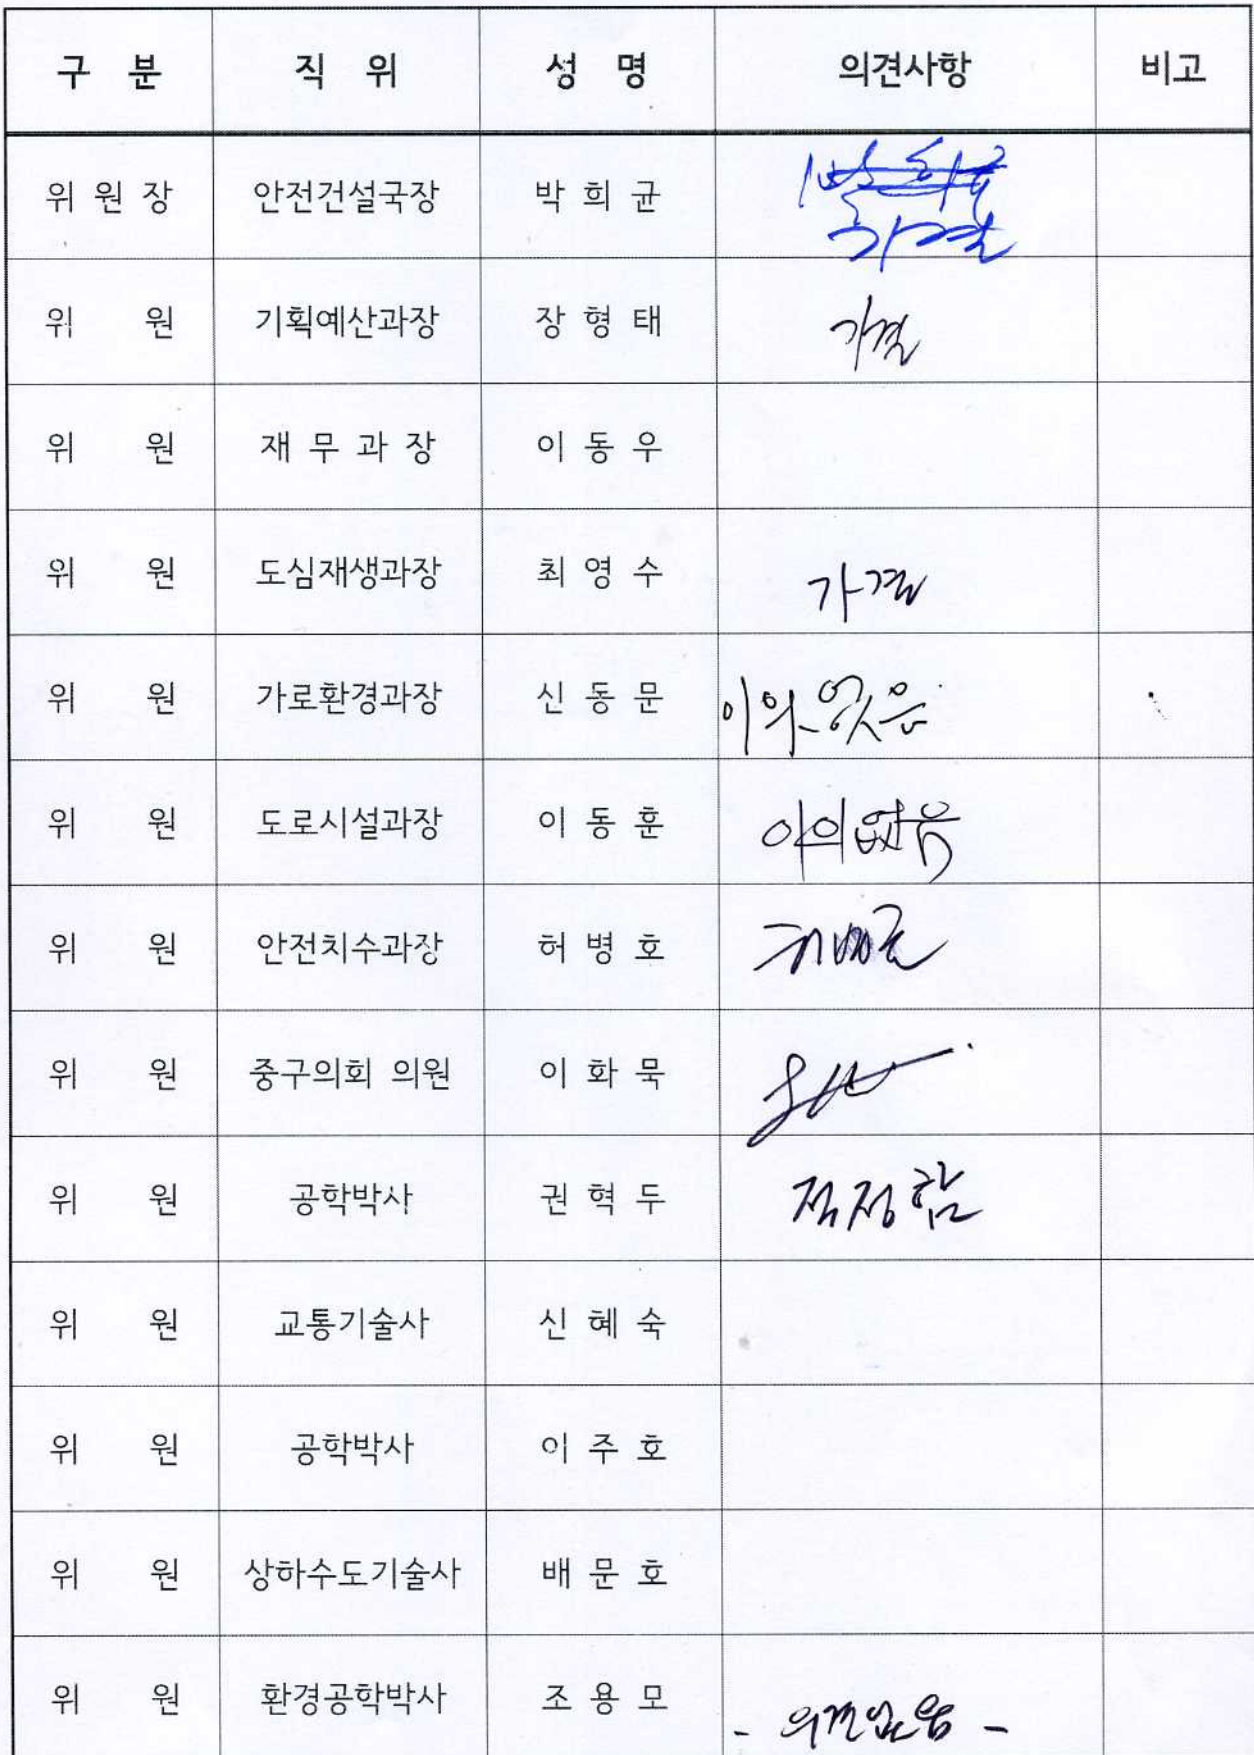 구 분 직 위 성 명 의견사항 비고
위 원 장 안전건설국장 박 희 균 박희균
가결
위 원 기획예산과장 장 형 태 가결
위 원 재 무 과 장 이 동 우
위 원 도심재생과장 최 영 수 가결
위 원 가로환경과장 신 동 문 이의 없음
위 원 도로시설과장 이 동 훈 이의없음
위 원 안전치수과장 허 병 호 허병호
위 원 중구의회 의원 이 화 묵
위 원 공학박사 권 혁 두 적정함
위 원 교통기술사 신 혜 숙
위 원 공학박사 이 주 호
위 원 상하수도기술사 배 문 호
위 원 환경공학박사 조 용 모 - 의견없음 -